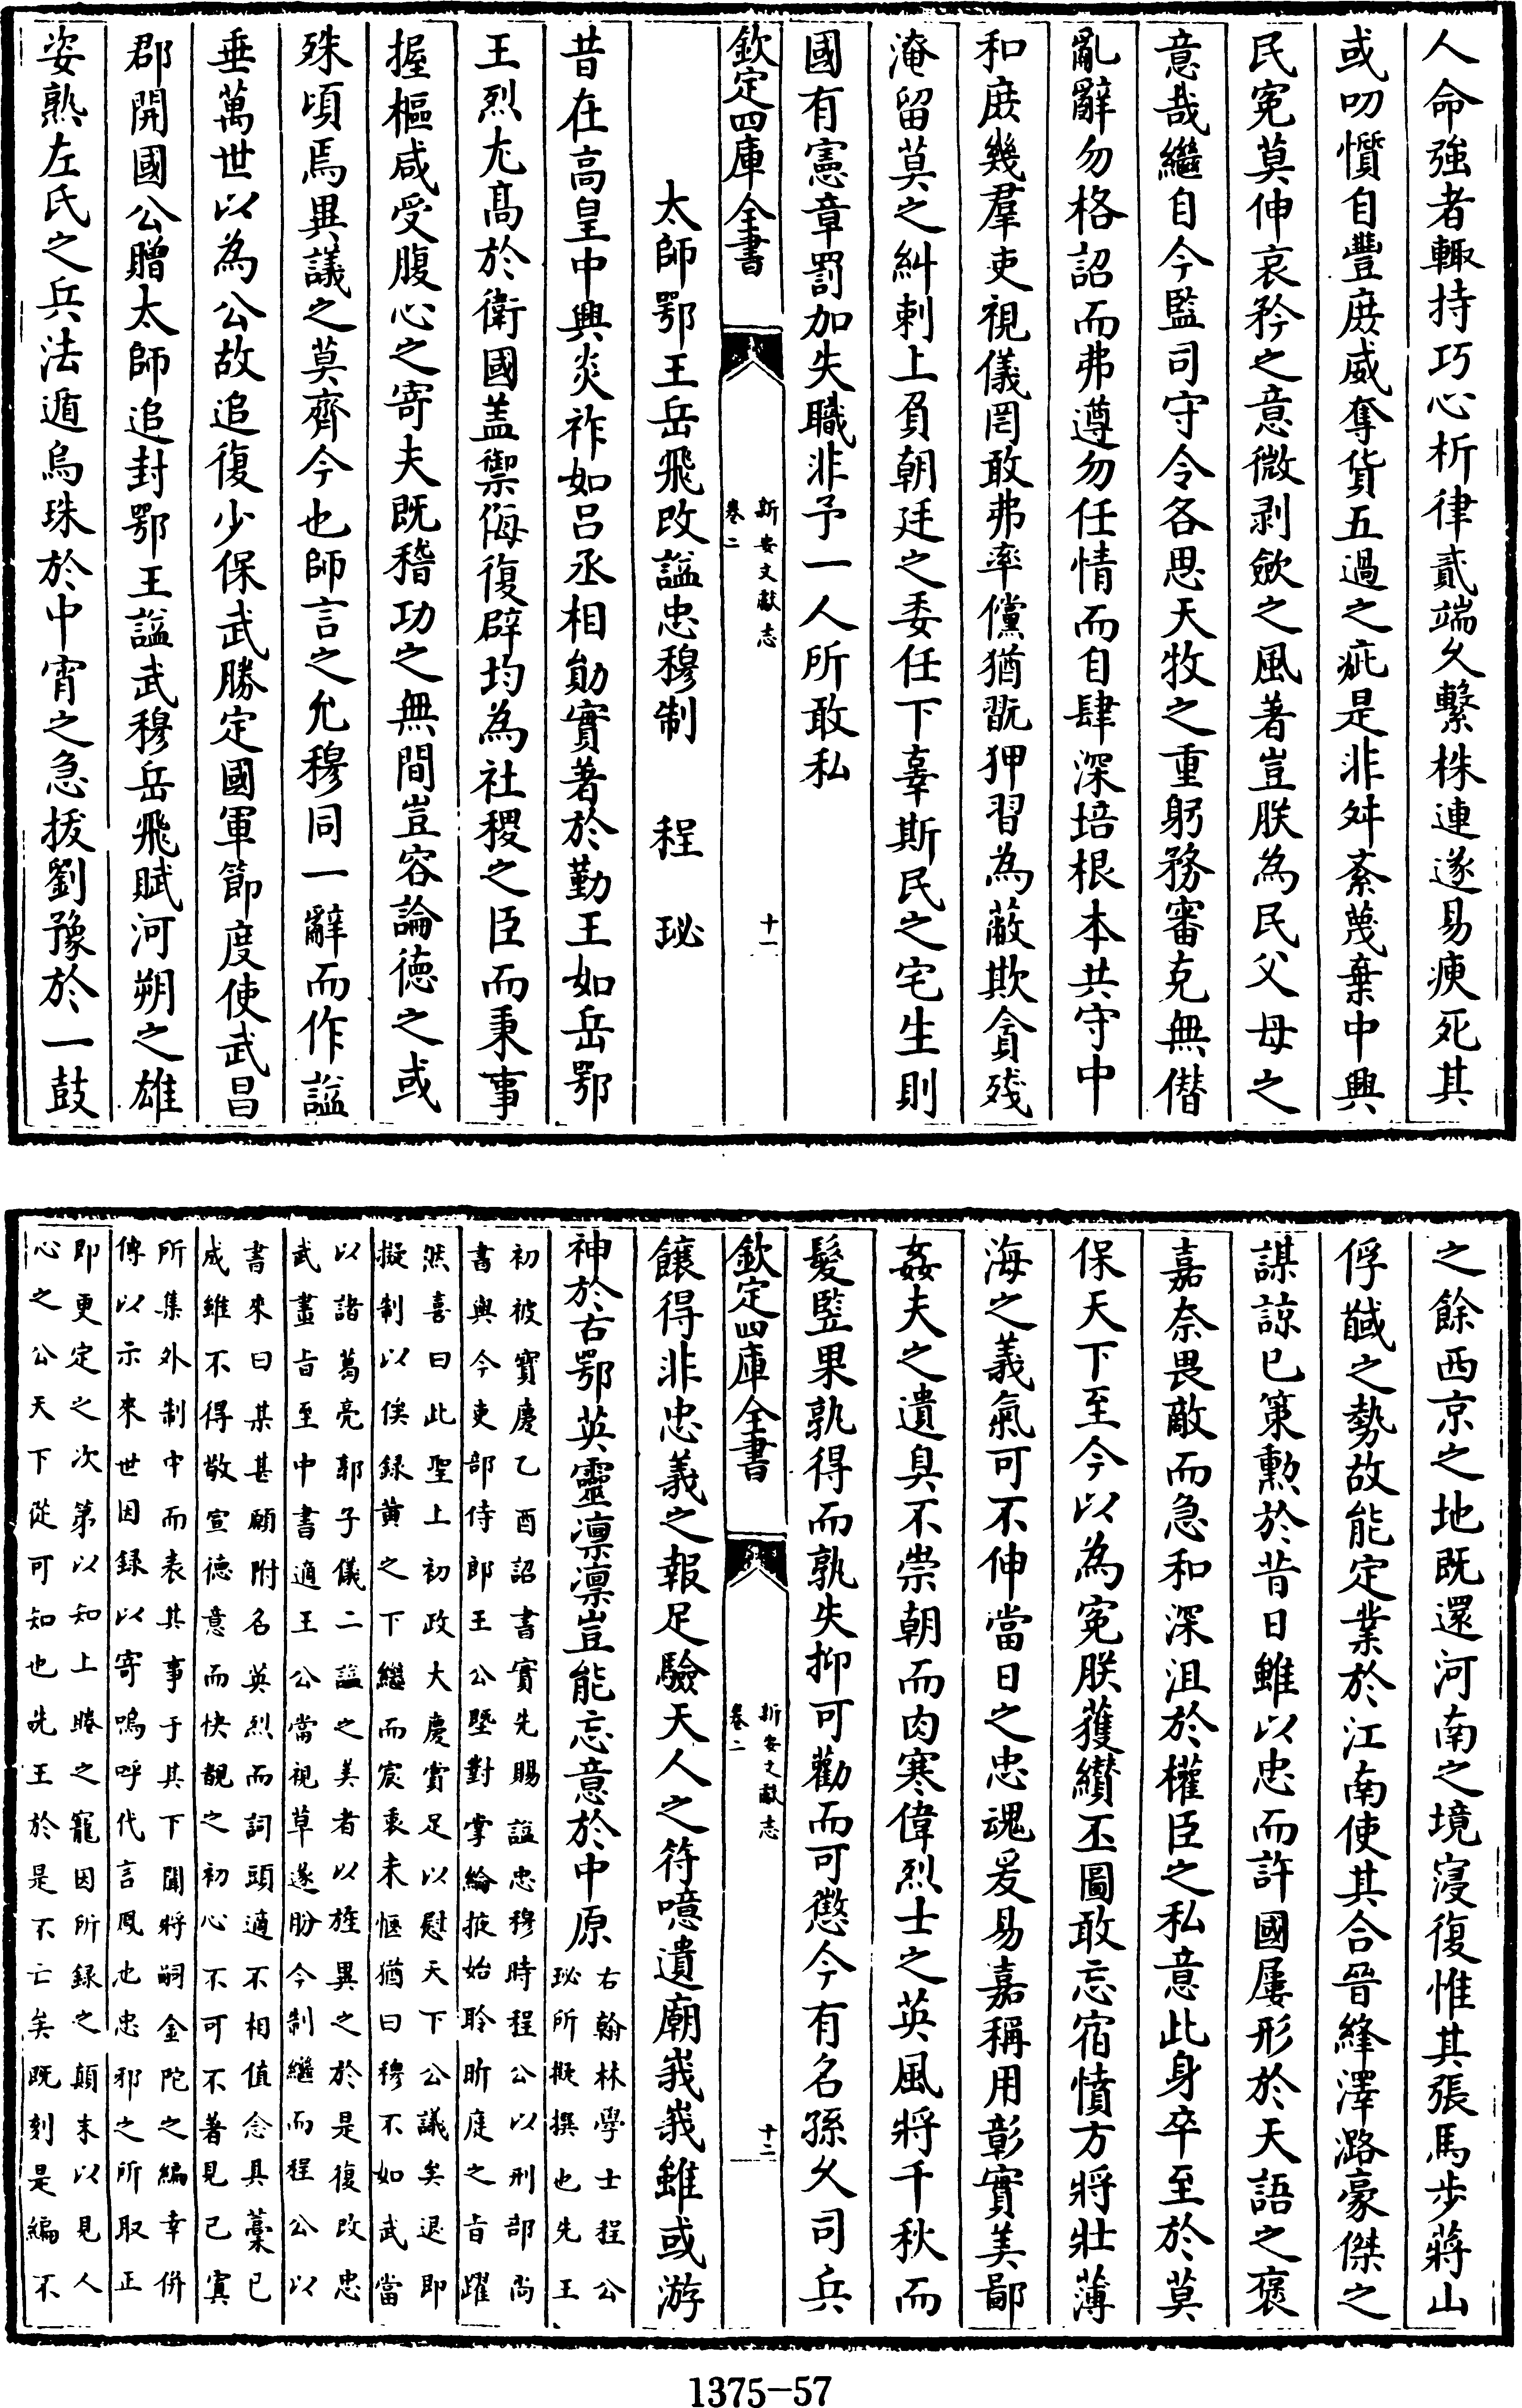 人命強者輙持巧心析律貳端久繫株連遂易㾕死其
或叨懫自豐庶威奪貨五過之疵是非舛紊蔑棄中興
民寃莫伸哀矜之意微剥歛之風著豈朕為民父母之
意哉繼自今監司守令各思天牧之重躬務審克無僭
亂辭勿格詔而弗遵勿任情而自肆深培根本共守中
和庶幾羣吏視儀罔敢弗率儻猶翫狎習為蔽欺貪殘
淹留莫之糾刺上負朝廷之委任下辜斯民之宅生則
國有憲章罰加失職非予一人所敢私
欽定四庫全書
新安文獻志
卷二
十一
太師鄂王岳飛改諡忠穆制　程　珌
昔在高皇中興炎祚如呂丞相勛實著於勤王如岳鄂
王烈尤高於衛國盖禦侮復辟均為社稷之臣而秉事
握樞咸受腹心之寄夫既稽功之無間豈容論德之或
殊頃焉異議之莫齊今也師言之允穆同一辭而作諡
垂萬世以為公故追復少保武勝定國軍節度使武昌
郡開國公贈太師追封鄂王諡武穆岳飛賦河朔之雄
姿熟左氏之兵法遁烏珠於中宵之急拔劉豫於一鼓
之餘西京之地既還河南之境寖復惟其張馬步蔣山
俘馘之勢故能定業於江南使其合晉絳澤潞豪傑之
謀諒已策勲於昔日雖以忠而許國屢形於天語之褒
嘉奈畏敵而急和深沮於權臣之私意此身卒至於莫
保天下至今以為寃朕獲纘丕圖敢忘宿憤方將壯薄
海之義氣可不伸當日之忠魂爰易嘉稱用彰實美鄙
姦夫之遺臭不崇朝而肉寒偉烈士之英風將千秋而
髮竪果孰得而孰失抑可勸而可懲今有名孫久司兵
欽定四庫全書
新安文獻志
卷二
十二
饟得非忠義之報足驗天人之符噫遺廟峩峩雖或游
神於古鄂英靈凛凛豈能忘意於中原
右翰林學士程公
珌所擬撰也先王
初被寳慶乙酉詔書實先賜諡忠穆時程公以刑部尚
書與今吏部侍郎王公塈對掌綸掖始聆昕庭之旨躍
然喜曰此聖上初政大慶賞足以慰天下公議矣退即
擬制以俟録黄之下繼而宸衷未愜猶曰穆不如武當
以諸葛亮郭子儀二諡之美者以旌異之於是復改忠
武畫旨至中書適王公當視草遂昉今制繼而程公以
書來曰某甚願附名英烈而詞頭適不相值念具藁已
成雖不得敬宣德意而快覩之初心不可不著見已寘
所集外制中而表其事于其下聞將嗣金陀之編幸併
傳以示來世因録以寄嗚呼代言鳳也忠邪之所取正
即更定之次第以知上眷之寵因所録之顛末以見人
心之公天下從可知也先王於是不亡矣既刻是編不
1375-57